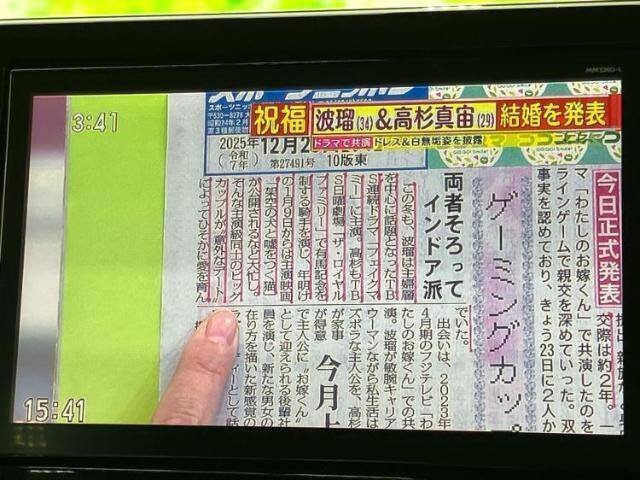 MM726D-L
3:41
スポーツニッポン
祝福 波瑠(34)&高杉真宙(29) 結婚を発表
ドラマで共演 ドレス&白無垢姿を披露
GO!GO!Smile!
2025年
(令和7年)
第27491号 10版東
今日正式発表
交際は約2年。一
マ「わたしのお嫁くん」で共演したのを
ラインゲームで親交を深めていった。双
事実を認めており、きょう23日に2人か
ゲーミングカッ。
両者そろって
インドア派
でいた。
出会いは、2023年
4月期のフジテレビ「わ
たしのお嫁くん」での共
演。波瑠が敏腕キャリア
ウーマンながら私生活は
ズボラな主人公を、高杉
が家事
が得意
で主人公に"お嫁くん"
として迎えられる後輩社
員を演じ、新たな男女の
在り方を描いた新感覚の
今月上
この冬も、波瑠は主婦層
を中心に話題となったTB
S連続ドラマ「フェイクマ
ミー」に主演。高杉もTB
S日曜劇場「ザ・ロイヤル
ファミリー」で有馬記念を
制する騎手を演じ、年明け
の1月9日からは主演映画
「架空の犬と嘘をつく猫」
が公開されるなど大忙し。
そんな主演級同士のビッグ
カップルが"意外なデート"
によってひそかに愛を育ん
15:41